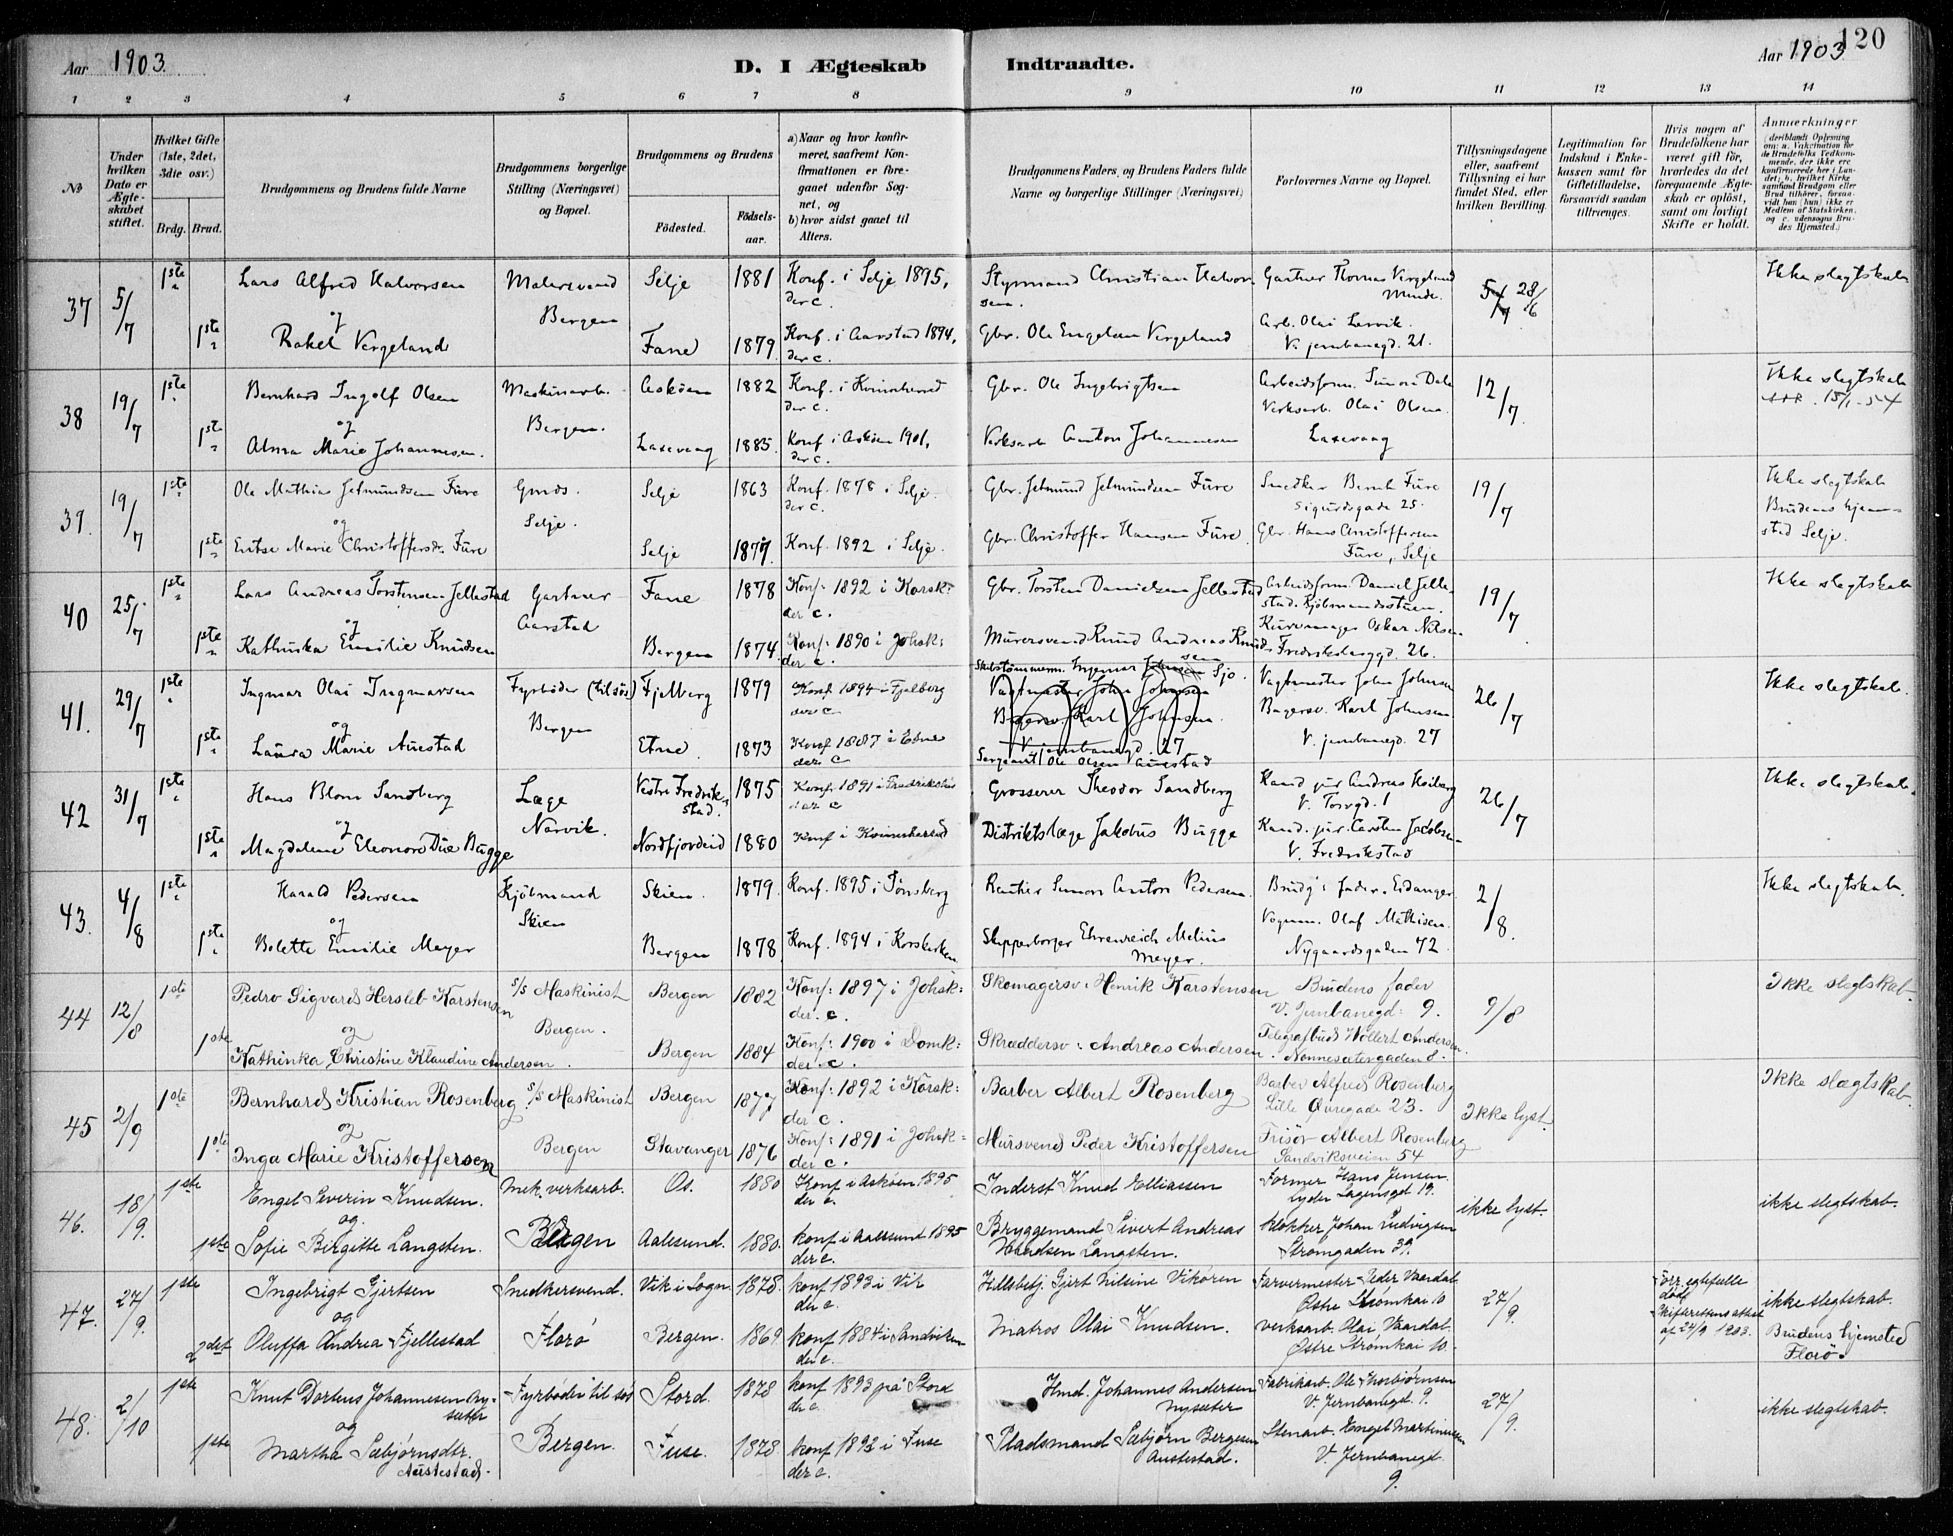 Aar 1903.
D. I Ægteskab
Indtraadte.
Aar 1903
120
1 2 3 4 5 6 7 8 9 10 11 12 13 14
No
Under hvilken Dato er Ægteskabet stiftet.
Hvilket Gifte (1ste, 2det, 3die osv.)
Brdg. Brud.
Brudgommens og Brudens fulde Navne
Brudgommens borgerlige Stilling (Næringsvei) og Bopæl.
Brudgommens og Brudens
Födested.
Födsels-aar.
a) Naar og hvor konfirmeret, saafremt Konfirmationen er foregaaet udenför Sognet, og
b) hvor sidst gaaet til Alters.
Brudgommens Faders, og Brudens Faders fulde Navne og borgerlige Stillinger (Næringsvei)
Forlovernes Navne og Bopæl.
Tillysningsdagene eller, saafremt Tillysning ei har fundet Sted, efter hvilken Bevilling.
Legitimation for Indskud i Enkekassen samt for Giftetilladelse, forsaavidt saadan tiltrænges.
Hvis nogen af Brudefolkene har været gift för, hvorledes da det foregaaende Ægteskab er oplöst, samt om lovligt Skifte er holdt.
Anmærkninger
37 5/7 1ste Lars Alfred Halvorsen Malersvend Selje 1881 Konf. i Selje 1895, der c. Styrmand Christian Halvorsen. Gartner Thomas Vergeland Minde. 28/6 Ikke slegtskab
og Bergen
1ste Rakel Vergeland Fane 1879 Konf. i Aarstad 1894, der c. Gbr. Ole Engelsen Vergeland Arb. Olai Larvik. V. jernbanegd. 21.
38 19/7 1ste Bernhard Ingolf Olsen Maskinarb. Askøen 1882 Konf. i Kvinnherred der c. Gbr. Ole Ingebrigtsen Arbeidsform. Simon Dale 12/7 Ikke slegtskab
15/1-54
og Bergen.
1ste Alma Marie Johannesen. Laxevaag 1883 Konf. i Askøen 1901, der c. Verksarb Anton Johannesen Verksarb. Olai Olsen Laxevaag
39. 19/7 1ste Ole Mathias Jetmundsen Fure Gmds. Selje 1863 Konf. 1878 i Selje. der c. Gbr. Jetmund Jetmundsen Fure Snedker Bernt Fure Sigurdsgade 25. 19/7 Ikke slegtskab Brudens hjemsted Selje.
og Selje.
1ste Marie Christoffersdr. Fure Selje 1877. Konf. 1892 i Selje. Gbr. Christoffer Hansen Fure. Gbr. Hans Christoffersen Fure, Selje
40 25/7 1ste Lars Andreas Torstensen Jellestad Gartner Fane 1878 Konf: 1892 i Korsk: der c. Gbr. Torsten Danielsen Jellestad Arbeidsform. Daniel Jellestad. Kjöbmandsstuen. 19/7 Ikke slegtskab
og Aarstad
1ste Kathinka Emilie Knudsen Bergen 1874 Konf: 1890 i Johsk: der c. Murersvend Knud Andreas Knudsen Kurvmager Oskar Nilsen Fredriksbergsgd. 26.
41. 29/7 1ste Ingmar Olai Ingmarsen Fyrböder (tilsøs) Fjelberg 1879 Konf. 1894 i Fjelberg der c. Skibstömmerm. Ingemar Johnsen Sjo. Vagtmester John Johnsen 26/7 Ikke slegtskab.
Vagtmester John Johnsen
og Bergen Bagersv. Karl Johnsen. Bagersv. Karl Johnsen
V. jernbanegd. 27 V. jernbanegd. 27
1ste Laura Marie Auestad Etne 1873 Konf 1887 i Etne der c Sergeant Ole Olsen Auestad
42 31/7 1ste Hans Blom Sandberg Læge Vestre Fredrikstad. 1875 Konf. 1891 i Fredrikstad der c Grosserer Theodor Sandberg Kand jur Andreas Hoiberg V. Torvgd. 1 26/7 Ikke slegtskab.
og Narvik.
1ste Magdalene Eleonore Due Bugge Nordfjordeid 1880 Konf i Kvinnherred Distriktslæge Jakobus Bugge Kand. jur. Carsten Jacobsen V. Fredrikstad
43. 4/8 1ste Harald Pedersen Kjöbmand Skien. 1879. Konf. 1895 i Tønsberg Rentier Simon Anton Pedersen. Brudg's fader, Eidanger 2/8. Ikke slegtskab.
og Skien
1ste Bolette Emilie Meyer Bergen 1878 Konf. 1894 i Korskirken Skipperborger Ehrenreich Melius Meyer. Vognm. Olaf Mathisen. Nygaardsgaden 42
44 12/8 1ste Pedro Sigvard Hersleb Karstensen s/s Maskinist Bergen 1882 Konf: 1897 i Johsk: der. c. Skomagersv: Henrik Karstensen Brudens fader V. Jernbanegd: 9. 9/8 Ikke slegtskab.
og Bergen.
1ste Kathinka Christine Klaudine Andersen. Bergen 1884 Konf: 1900 i Domk: der. c. Skræddersv: Andreas Andersen. Telegrafbud Wollert Andersen. Nonnesætergaden 8.
45 2/9 1ste Bernhard Kristian Rosenberg s/s Maskinist Bergen 1877 Konf: 1892 i Korsk: der c. Barber Albert Rosenberg Barber Alfred Rosenberg Lille Øvregade 23. Ikke lyst. Ikke slegtskab.
og
1ste Inga Marie Kristoffersen Bergen Stavanger 1876 Konf: 1891 i Johsk: der c. Mursvend Peder Kristoffersen Frisør Albert Rosenberg Sandviksveien 54
46. 18/9. 1ste Engel Severin Knudsen. Mek. verksarb. Os. 1880 Konf i Askøen 1895 der c. Inderst Knud Elliassen Former Hans Jensen Lyder Sagensgd 19. ikke lyst. ikke slegtskab.
og
1ste Sofie Birgitte Langsten. Bergen Aalesund. 1880. konf i Aalesund 1895 der c. Bryggemand Sivert Andreas Langsten. klokker Johan Ludvigsen Strømgaden 39.
47. 27/9. 1ste Ingebrigt Gjertsen Snedkersvend. Vik i Sogn 1878. konf 1893 i Vik der c. Gjert Vikøren Farvermester Peder Vaardal Østre Strømkai 10 27/9. død Skifterettens attest af 24/9 1903. ikke slegtskab. Brudens hjemsted Florø.
og
2det Oluffa Andrea Fjellestad Florø Bergen. 1869. konf 1884 i Sandviken der c. Matros Olai Knudsen. verksarb. Olai Vaardal. Østre Strømkai 10.
48. 2/10 1ste Knut Dortens Johannesen Nysæter Fyrbøder til søs Stord. 1878 konf 1893 på Stord der c. Hmd. Johannes Andersen Nysæter Fabrikarb. Ole Thorbjørnsen V. Jernbanegd 9. 27/9. ikke slegtskab.
og
1ste Martha Sæbjørnsdtr. Austestad. Bergen. Fuse. 1878 konf 1893 i Fuse der c. Pladsmand Sæbjørn Bergesen Austestad. Stenarb. Engel Martinusen V. Jernbanegd 9.